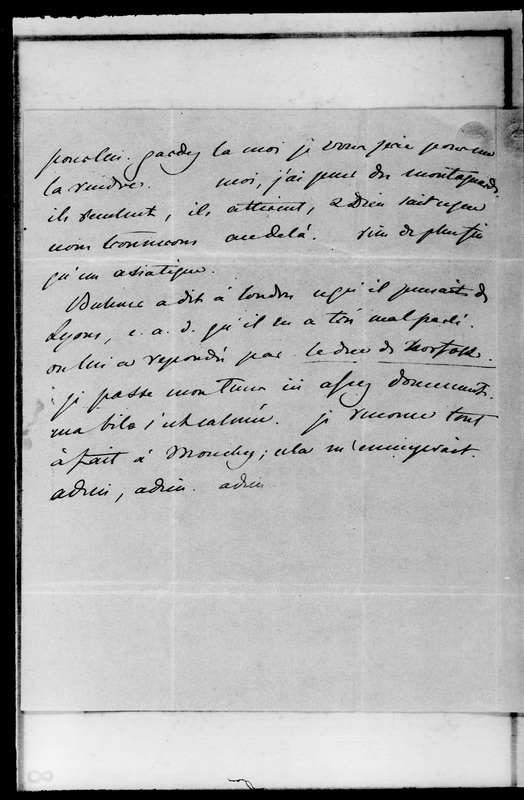 pour lui. gardez la moi je vous prie pour me
la rendre. moi, j'ai peur des montagnards
ils reculent, ils attirent, & Dieu sait ce que
nous trouverons au delà. rien de plus fin
qu'un asiatique.
Bulwer a dit à Londres ce qu'il pensait de
Lyons, c. a. d. qu'il en a très mal parlé.
on lui a repondu par le duc de Norfolk.
je passe mon tems ici assez doucement.
ma bile s'est calmée. je renonce tout
à fait à Mouchy; cela m'ennuyerait.
adieu, adieu. adieu